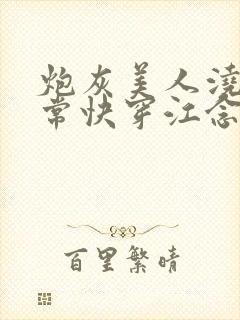 炮灰美人澆
常快穿江念
百里繁晴